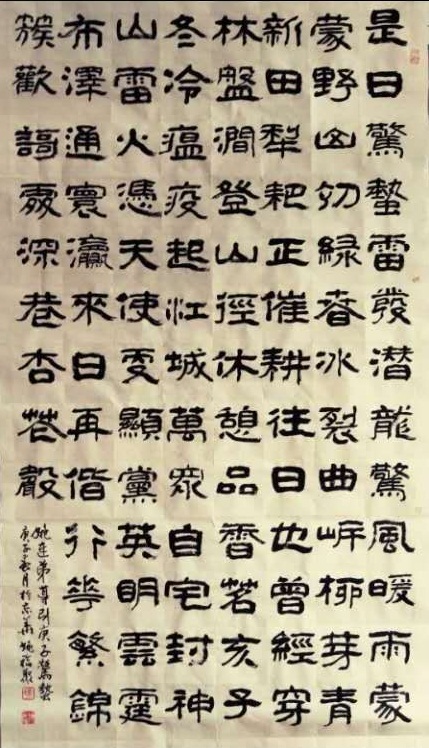 是日驚蟄雷發潛龍驚風暖雨蒙
蒙野山初綠春冰裂曲岸柳芽青
新田犁耙正催耕往日也曾經穿
林盤澗登山徑休憩品香茗亥子
冬冷瘟疫起江城萬眾自宅封神
山雷火憑天使更顯黨英明雲霆
布澤通寰瀛來日再偕行華繁錦
簇歡謌處深巷杏花聲
庚子驚蟄
庚子春月於京華